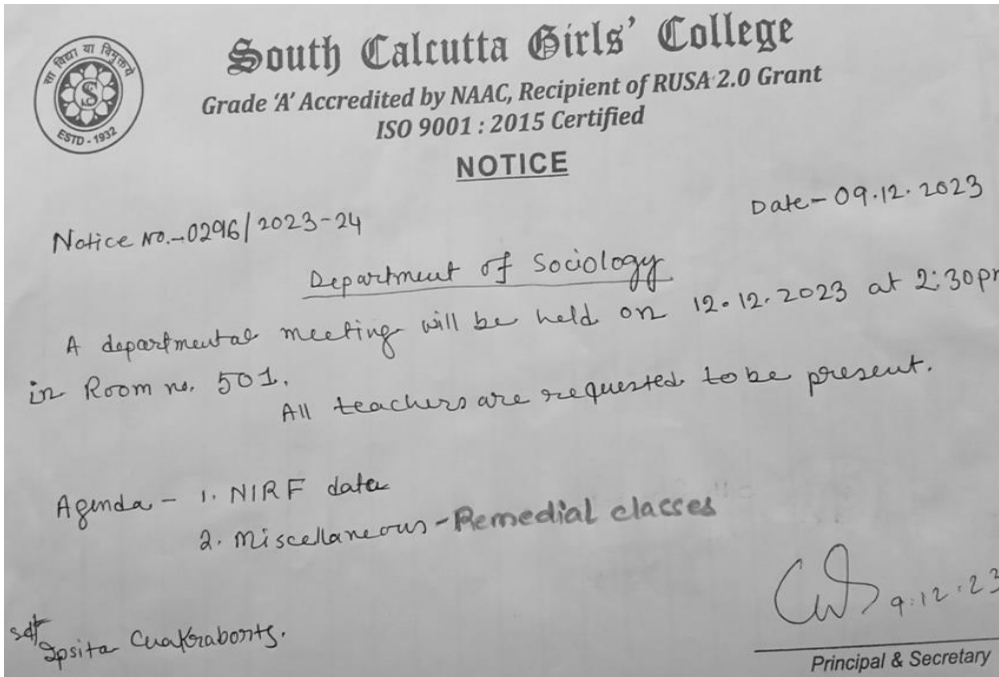 सा विद्या या विमुक्तये
ESTD - 1932
South Calcutta Girls' College
Grade 'A' Accredited by NAAC, Recipient of RUSA 2.0 Grant
ISO 9001 : 2015 Certified
NOTICE
Date- 09.12.2023
Notice No.-0296/2023-24
Department of Sociology
A departmental meeting will be held on 12.12.2023 at 2:30pm
in Room no. 501.
All teachers are requested to be present.
Agenda - 1. NIRF data
2. Miscellaneous - Remedial classes
9.12.23
Sd/-
Ipsita Chakraborty.
Principal & Secretary